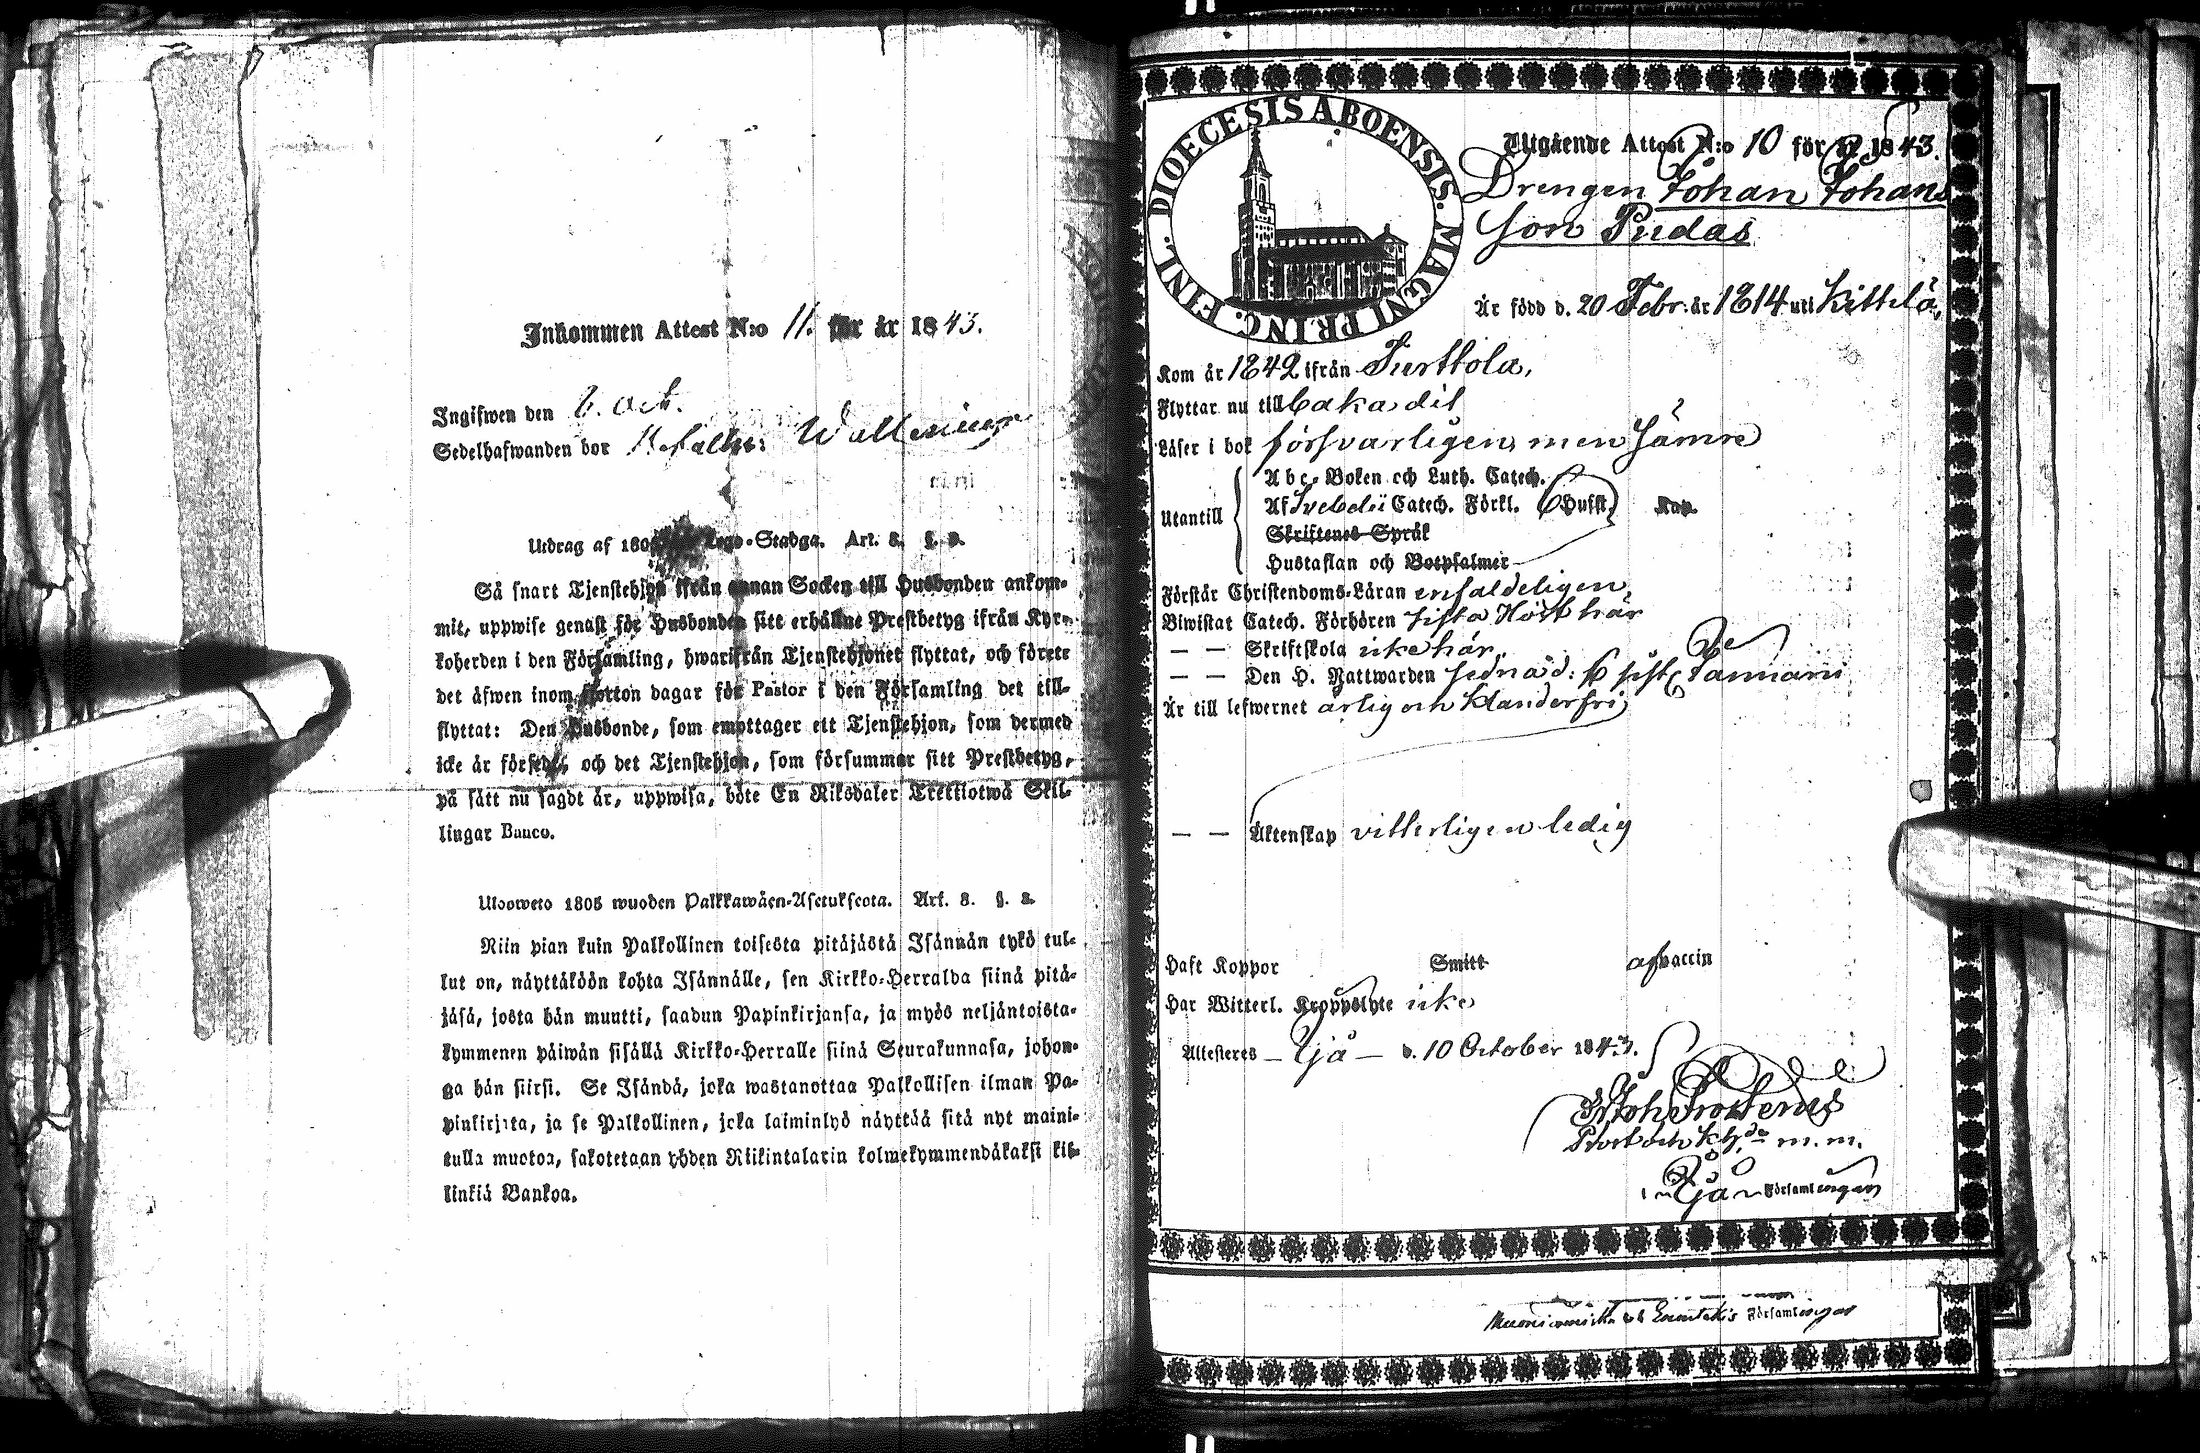 Inkommen Attest N:o 11. för år 1843.
Ingifwen den 6. Oct.
Sedelhafwanden bor
Utdrag af Lego-Stadga. Art. 8. §. 2.
Så snart Tjenstehjon ifrån annan Socken till Husbonden ankom-
mit, uppwise genast för Husbonden sitt erhållne Prestbetyg ifrån Kyr-
koherden i den Församling, hwarifrån Tjenstehjonet flyttat, och förete
det äfwen inom fjorton dagar för Pastor i den Församling det till-
flyttat: Den Husbonde, som emottager ett Tjenstehjon, som dermed
icke är försedt, och det Tjenstehjon, som försummar sitt Prestbetyg,
på sätt nu sagdt är, uppwisa, böte En Riksdaler Trettiotwå Skil-
lingar Banco.
Ulosweto 1805 wuoden Palkkawäen-Asetuksesta. Art. 8. §. 2.
Niin pian kuin Palkollinen toisesta pitäjästä Isännän tykö tul-
lut on, näyttäköön kohta Isännälle, sen Kirkko-Herralda siinä pitä-
jäsä, josta hän muutti, saadun Papinkirjansa, ja myös neljäntoista-
kymmenen päiwän sisällä Kirkko-Herralle siinä Seurakunnasa, johon-
ga hän siirsi. Se Isändä, joka wastanottaa Palkollisen ilman Pa-
pinkirjata, ja se Palkollinen, joka laiminlyö näyttää sitä nyt maini-
tulla muotoa, sakotetaan yhden Riikintalarin kolmekymmendäkaksi kil-
linkiä Bankoa.
DIOECESIS ABOENSIS. MAGNI PRINC. FINL.
Utgående Attest N:o 10 för år 1843.
Drengen Johan Johans
son Pudas
Är född d. 20 Febr. år 1814 uti Kittilä,
Kom år 1842 ifrån Turttola,
Flyttar nu till baka dit
Läser i bok försvarligen, men sämre
Utantill
Abc-Boken och Luth. Catech.
Af Svebelii Catech. Förkl. 6 Hufst. Kap.
Skriftenes Språk
Hustaflan och Botpsalmer
Förstår Christendoms-Läran enfaldeligen,
Biwistat Catech. Förhören sista Höst här
— — Skriftskola icke här,
— — Den H. Nattwarden Januarii
Är till lefwernet ärlig och klanderfri
— — Äktenskap vitterligen ledig
Haft Koppor Smitt af vaccin
Har Witterl. Kroppslyte icke
Attesteres — Ijå — d. 10 October 1843.
Joh Frosterus
m. m.
i Ijå Församlingen
Muonioniska och Enontekis Församlingar